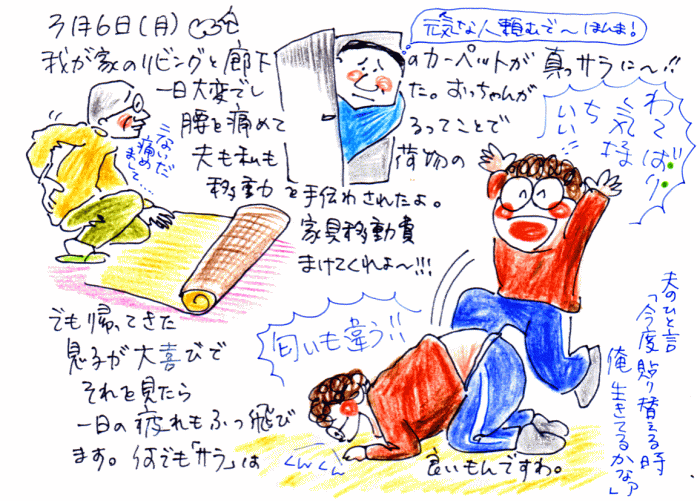 3月6日(月)
元気な人頼むで〜ほんま!
我が家のリビングと廊下のカーペットが真っサラに〜!!
一日大変でした。おっちゃんが
腰を痛めてるってことで
夫も私も荷物の
移動を手伝わされたよ。
家具移動費
まけてくれよ〜!!!
こないだ
痛めて
まして…
わて
ば〜り
気持
ち
いい
でも帰ってきた
息子が大喜びで
それを見たら
一日の疲れもふっ飛び
ます。何でも「サラ」は
良いもんですわ。
匂いも違う!!
くんくん
夫のひと言
「今度貼り替える時
俺生きてるかなァ」